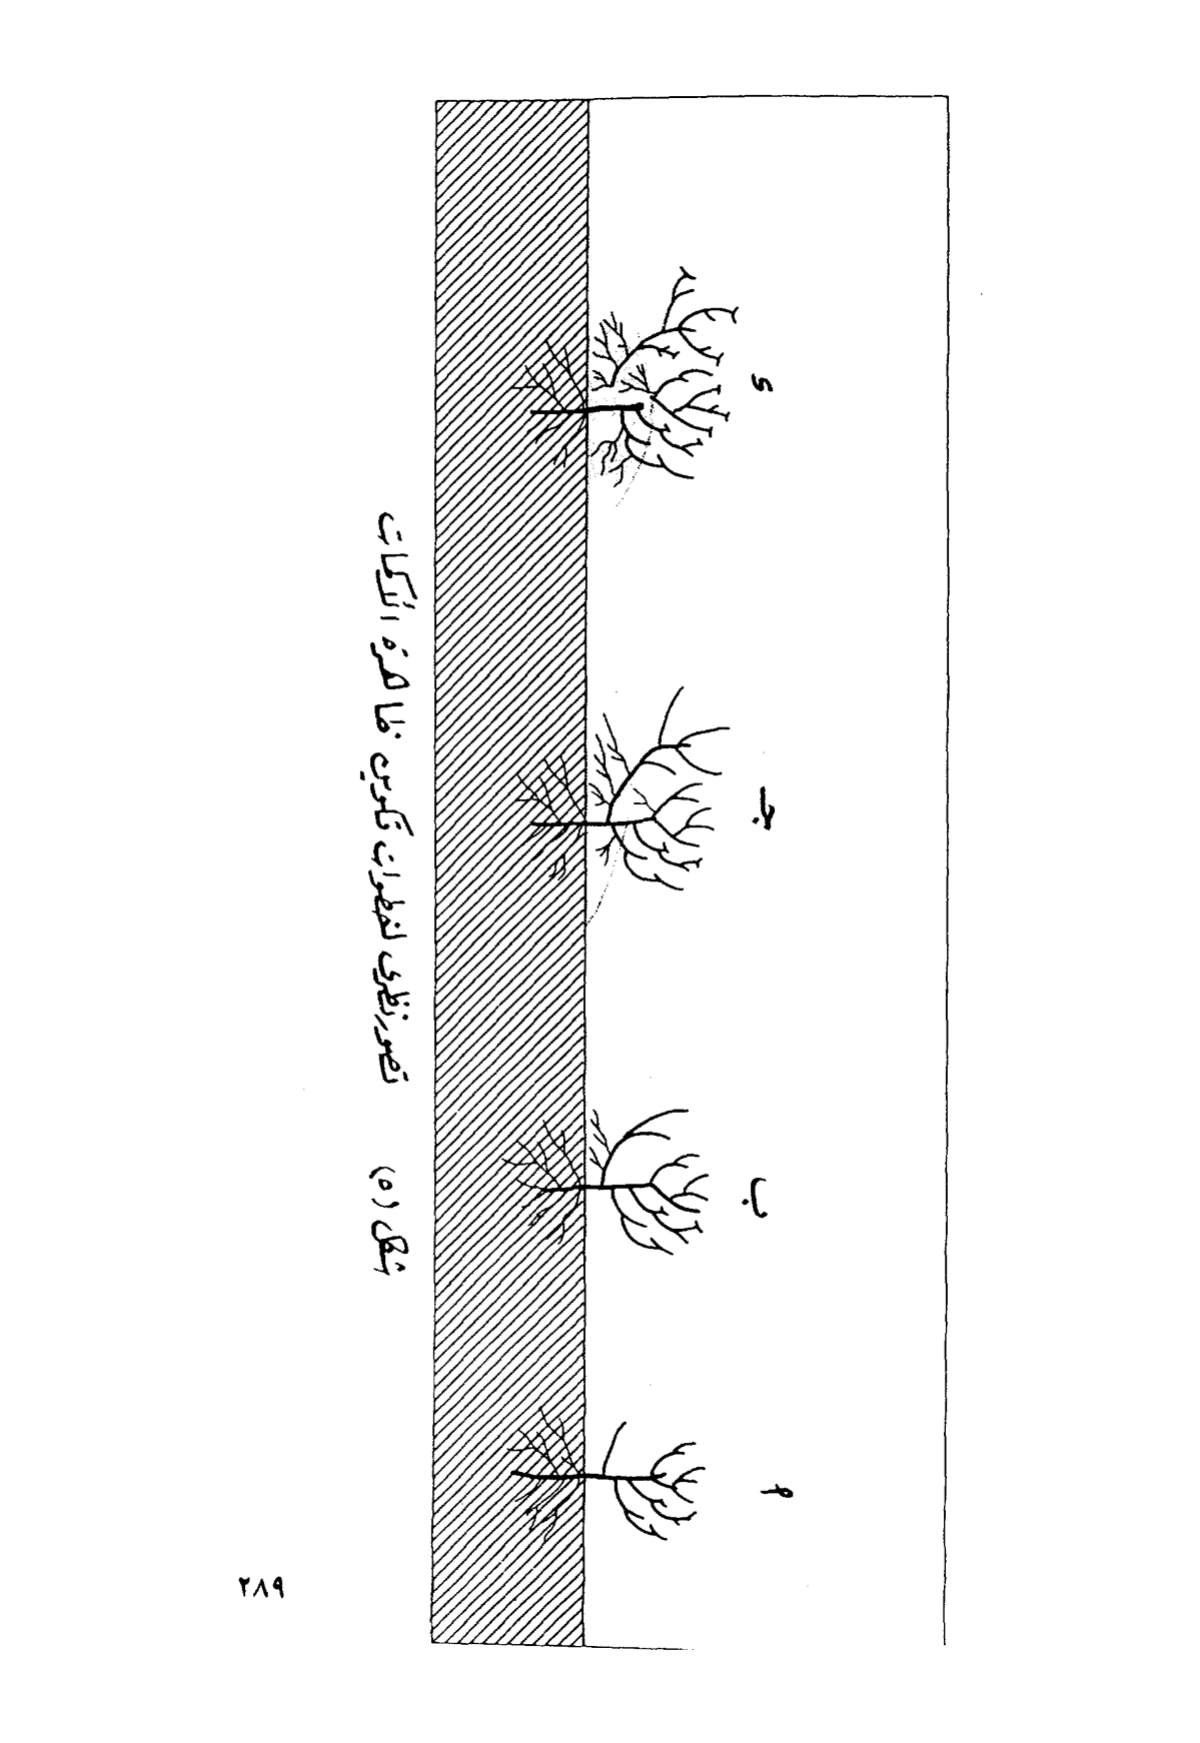 أ ب جـ د
شكل (٥) تصور نظرى لخطوات تكوين ظاهرة
٢٨٩